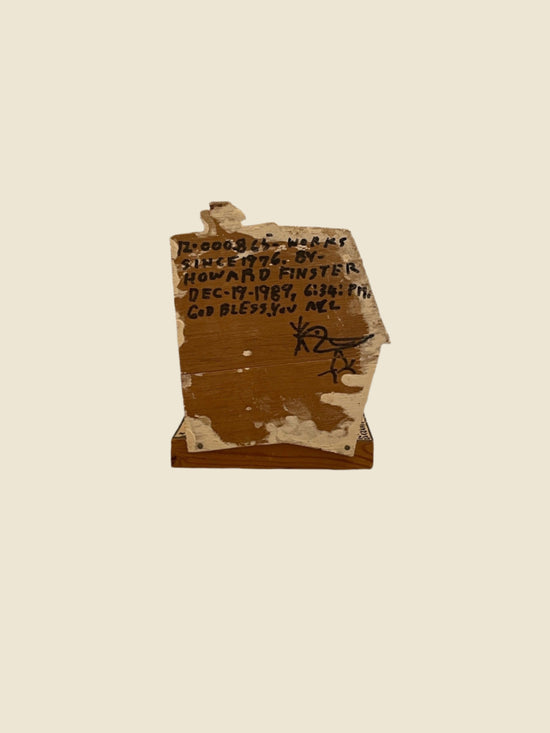 12.000.865- WORKS
SINCE 1976. BY-
HOWARD FINSTER
DEC-19-1989, 6:34: PM.
GOD BLESS, YOU ALL